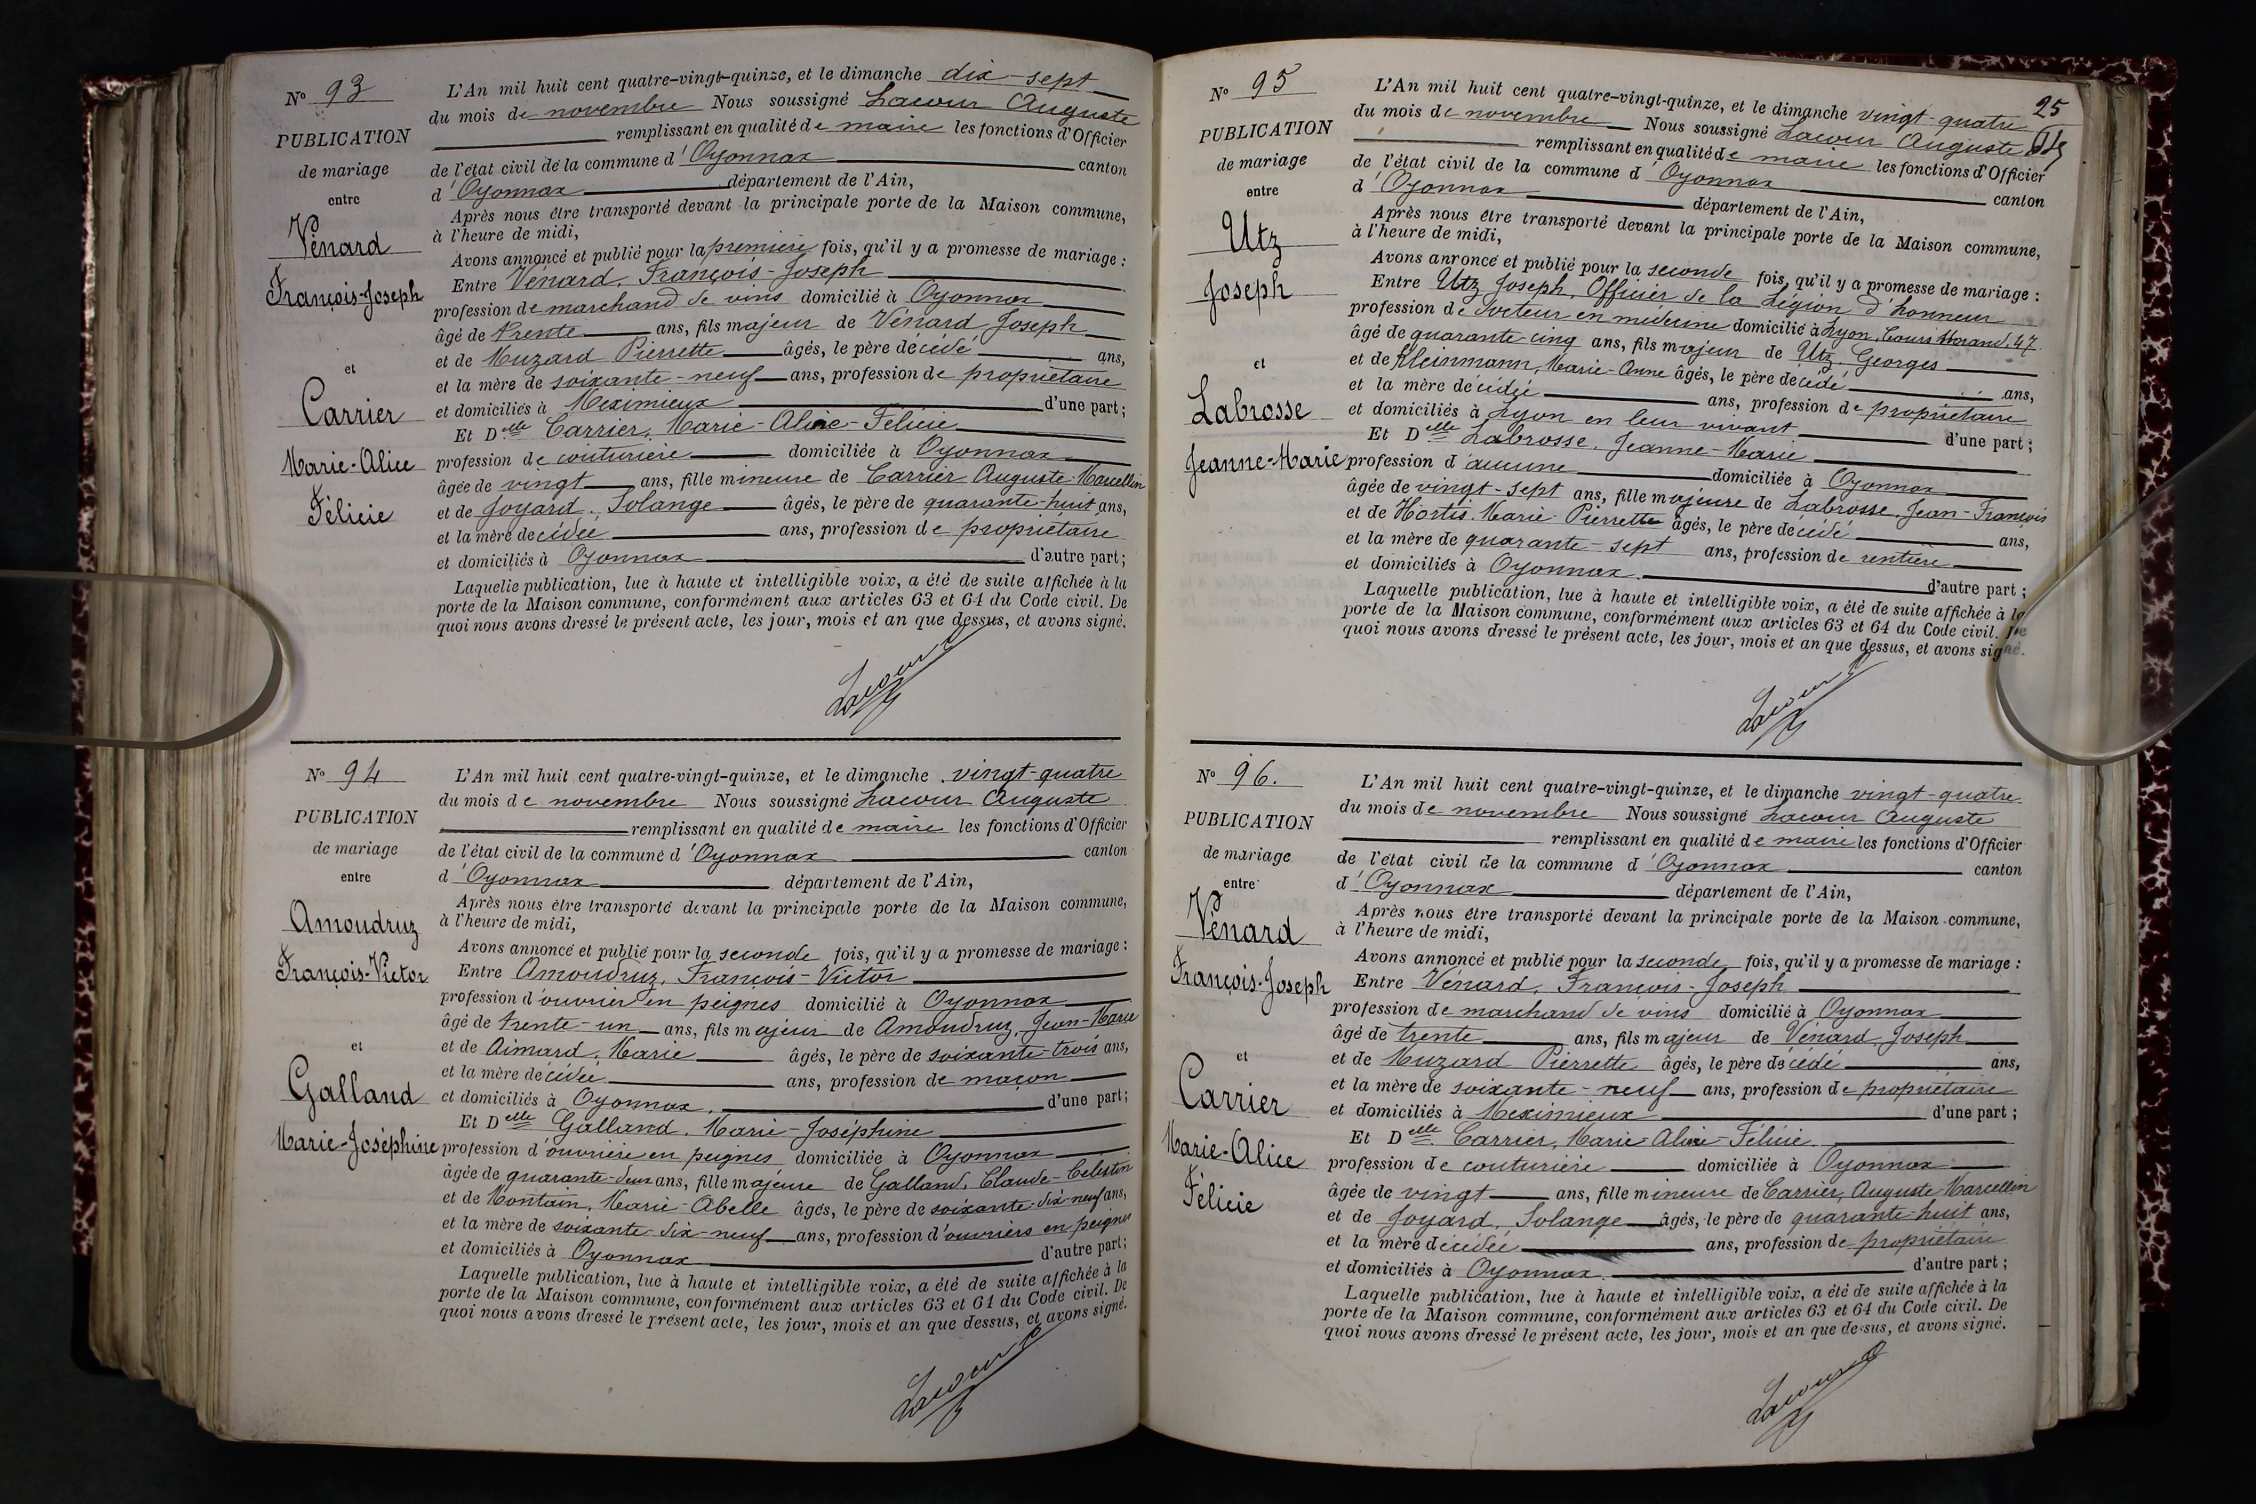 N° 93
PUBLICATION
de mariage
entre
Vénard
François-Joseph
et
Carrier
Marie-Alice
Félicie
L'An mil huit cent quatre-vingt-quinze, et le dimanche dix-sept
du mois de novembre Nous soussigné Lacour Auguste
remplissant en qualité de maire les fonctions d'Officier
de l'état civil de la commune d'Oyonnax canton
d'Oyonnax département de l'Ain,
Après nous être transporté devant la principale porte de la Maison commune,
à l'heure de midi,
Avons annoncé et publié pour la première fois, qu'il y a promesse de mariage :
Entre Vénard, François-Joseph
profession de marchand de vins domicilié à Oyonnax
âgé de trente ans, fils majeur de Vénard Joseph
et de Muzard Pierrette âgés, le père décédé ans,
et la mère de soixante-neuf ans, profession de propriétaire
et domiciliés à Meximieux d'une part ;
Et Delle Carrier, Marie-Alice-Félicie
profession de couturière domiciliée à Oyonnax
âgée de vingt ans, fille mineure de Carrier Auguste-Marcellin
et de Joyard, Solange âgés, le père de quarante-huit ans,
et la mère décédée ans, profession de propriétaire
et domiciliés à Oyonnax d'autre part ;
Laquelle publication, lue à haute et intelligible voix, a été de suite affichée à la
porte de la Maison commune, conformément aux articles 63 et 64 du Code civil. De
quoi nous avons dressé le présent acte, les jour, mois et an que dessus, et avons signé.
Lacour
N° 94
PUBLICATION
de mariage
entre
Amoudruz
François-Victor
et
Galland
Marie-Joséphine
L'An mil huit cent quatre-vingt-quinze, et le dimanche vingt-quatre
du mois de novembre Nous soussigné Lacour Auguste
remplissant en qualité de maire les fonctions d'Officier
de l'état civil de la commune d'Oyonnax canton
d'Oyonnax département de l'Ain,
Après nous être transporté devant la principale porte de la Maison commune,
à l'heure de midi,
Avons annoncé et publié pour la seconde fois, qu'il y a promesse de mariage :
Entre Amoudruz, François-Victor
profession d'ouvrier en peignes domicilié à Oyonnax
âgé de trente-un ans, fils majeur de Amoudruz, Jean-Marie
et de Aimard, Marie âgés, le père de soixante-trois ans,
et la mère décédée ans, profession de maçon
et domiciliés à Oyonnax, d'une part ;
Et Delle Galland, Marie-Joséphine
profession d'ouvrière en peignes domiciliée à Oyonnax
âgée de quarante-deux ans, fille majeure de Galland, Claude-Célestin
et de Montain, Marie-Abelle âgés, le père de soixante-dix-neuf ans,
et la mère de soixante-dix-neuf ans, profession d'ouvriers en peignes
et domiciliés à Oyonnax d'autre part ;
Laquelle publication, lue à haute et intelligible voix, a été de suite affichée à la
porte de la Maison commune, conformément aux articles 63 et 64 du Code civil. De
quoi nous avons dressé le présent acte, les jour, mois et an que dessus, et avons signé.
Lacour
25
N° 95
PUBLICATION
de mariage
entre
Utz
Joseph
et
Labrosse
Jeanne-Marie
L'An mil huit cent quatre-vingt-quinze, et le dimanche vingt-quatre
du mois de novembre Nous soussigné Lacour Auguste
remplissant en qualité de maire les fonctions d'Officier
de l'état civil de la commune d'Oyonnax canton
d'Oyonnax département de l'Ain,
Après nous être transporté devant la principale porte de la Maison commune,
à l'heure de midi,
Avons annoncé et publié pour la seconde fois, qu'il y a promesse de mariage :
Entre Utz Joseph, Officier de la Légion d'honneur
profession de docteur en médecine domicilié à Lyon, Cours Morand, 47
âgé de quarante cinq ans, fils majeur de Utz Georges
et de Kleinmann, Marie-Anne âgés, le père décédé ans,
et la mère décédée ans, profession de propriétaire
et domiciliés à Lyon en leur vivant d'une part ;
Et Delle Labrosse, Jeanne-Marie
profession d'aucune domiciliée à Oyonnax
âgée de vingt-sept ans, fille majeure de Labrosse, Jean-François
et de Hortis, Marie-Pierrette âgés, le père décédé ans,
et la mère de quarante-sept ans, profession de rentière
et domiciliés à Oyonnax. d'autre part ;
Laquelle publication, lue à haute et intelligible voix, a été de suite affichée à la
porte de la Maison commune, conformément aux articles 63 et 64 du Code civil. De
quoi nous avons dressé le présent acte, les jour, mois et an que dessus, et avons signé.
Lacour
N° 96.
PUBLICATION
de mariage
entre
Vénard
François-Joseph
et
Carrier
Marie-Alice
Félicie
L'An mil huit cent quatre-vingt-quinze, et le dimanche vingt-quatre
du mois de novembre Nous soussigné Lacour Auguste
remplissant en qualité de maire les fonctions d'Officier
de l'état civil de la commune d'Oyonnax canton
d'Oyonnax département de l'Ain,
Après nous être transporté devant la principale porte de la Maison commune,
à l'heure de midi,
Avons annoncé et publié pour la seconde fois, qu'il y a promesse de mariage :
Entre Vénard, François-Joseph
profession de marchand de vins domicilié à Oyonnax
âgé de trente ans, fils majeur de Vénard Joseph
et de Muzard Pierrette âgés, le père décédé ans,
et la mère de soixante-neuf ans, profession de propriétaire
et domiciliés à Meximieux d'une part ;
Et Delle Carrier, Marie-Alice-Félicie
profession de couturière domiciliée à Oyonnax
âgée de vingt ans, fille mineure de Carrier, Auguste-Marcellin
et de Joyard, Solange âgés, le père de quarante-huit ans,
et la mère décédée ans, profession de propriétaire
et domiciliés à Oyonnax. d'autre part ;
Laquelle publication, lue à haute et intelligible voix, a été de suite affichée à la
porte de la Maison commune, conformément aux articles 63 et 64 du Code civil. De
quoi nous avons dressé le présent acte, les jour, mois et an que dessus, et avons signé.
Lacour